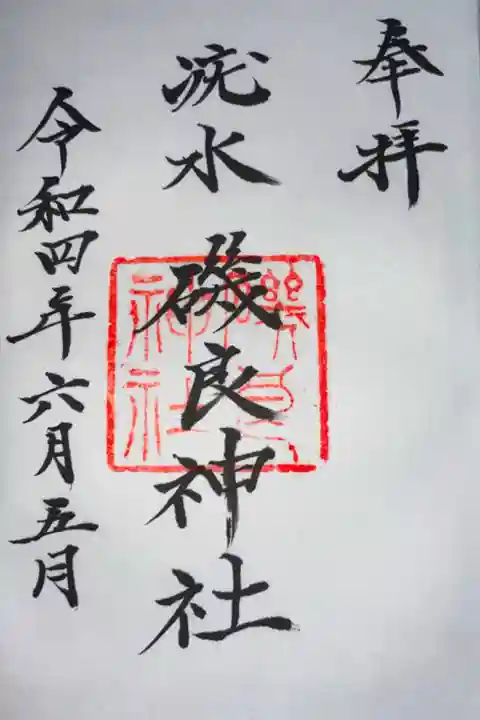 奉拝
疣水
磯良神社
令和四年六月五月
磯良神社